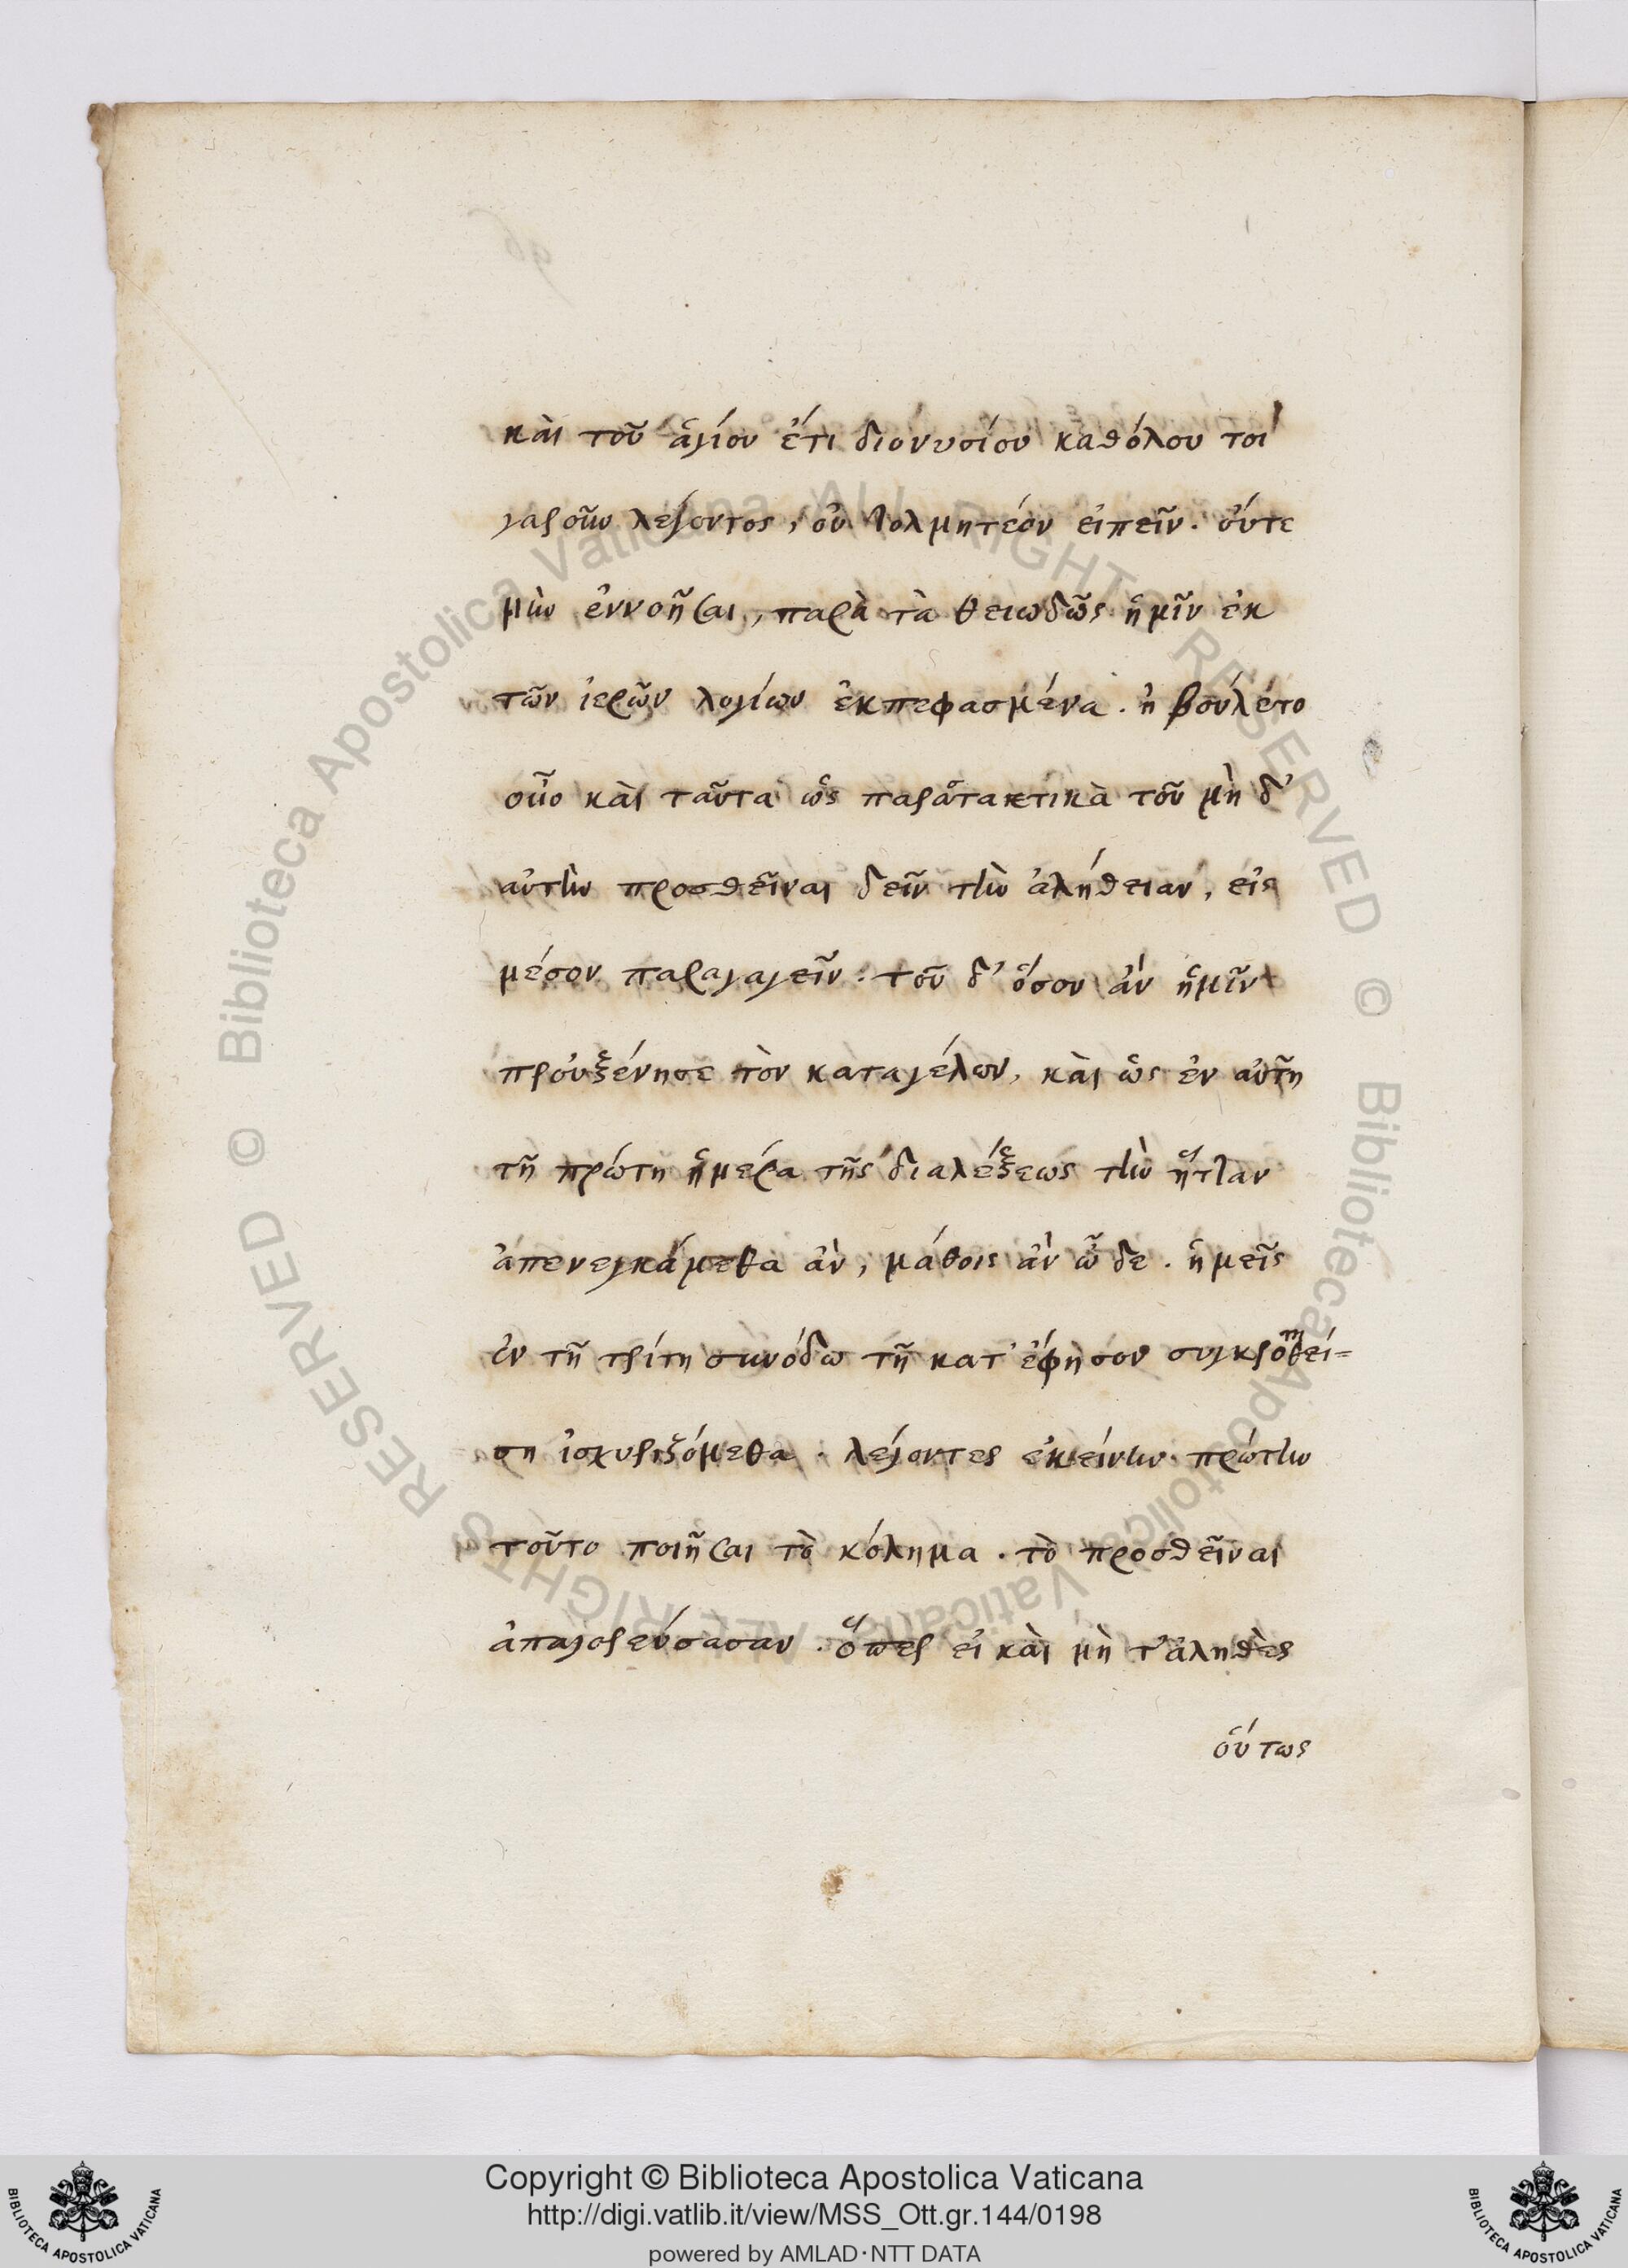 καὶ τοῦ ἁγίου ἔτι διονυσίου καθόλου τοί
γαρ οὖν λέγοντος, οὐ τολμητέον εἰπεῖν. οὔτε
μὴν ἐννοῆσαι, παρὰ τὰ θειωδῶς ἡμῖν ἐκ
τῶν ἱερῶν λογίων ἐκπεφασμένα. ἠβούλετο
οὖν καὶ ταῦτα ὡς παρατακτικὰ τοῦ μὴ δ'
αὐτὴν προσθεῖναι δεῖν τὴν ἀλήθειαν, εἰς
μέσον παραγαγεῖν. τοῦ δ' ὅσον ἂν ἡμῖν
προὐξένησε τὸν καταγέλων, καὶ ὡς ἐν αὐτῆ
τῆ πρώτη ἡμέρα τῆς διαλέξεως τὴν ἧτταν
ἀπενεγκάμεθα ἂν, μάθοις ἂν ὧδε. ἡμεῖς
ἐν τῆ τρίτη συνόδω τῆ κατ' ἔφησον συγκροτηθεί-
ση ἰσχυριζόμεθα. λέγοντες ἐκείνην πρώτην
τοῦτο ποιῆσαι τὸ κόλημα. τὸ προσθεῖναι
ἀπαγορεύσασαν. ὅπερ εἰ καὶ μὴ τ'ἀληθὲς
οὕτως
Copyright © Biblioteca Apostolica Vaticana
http://digi.vatlib.it/view/MSS_Ott.gr.144/0198
powered by AMLAD·NTT DATA